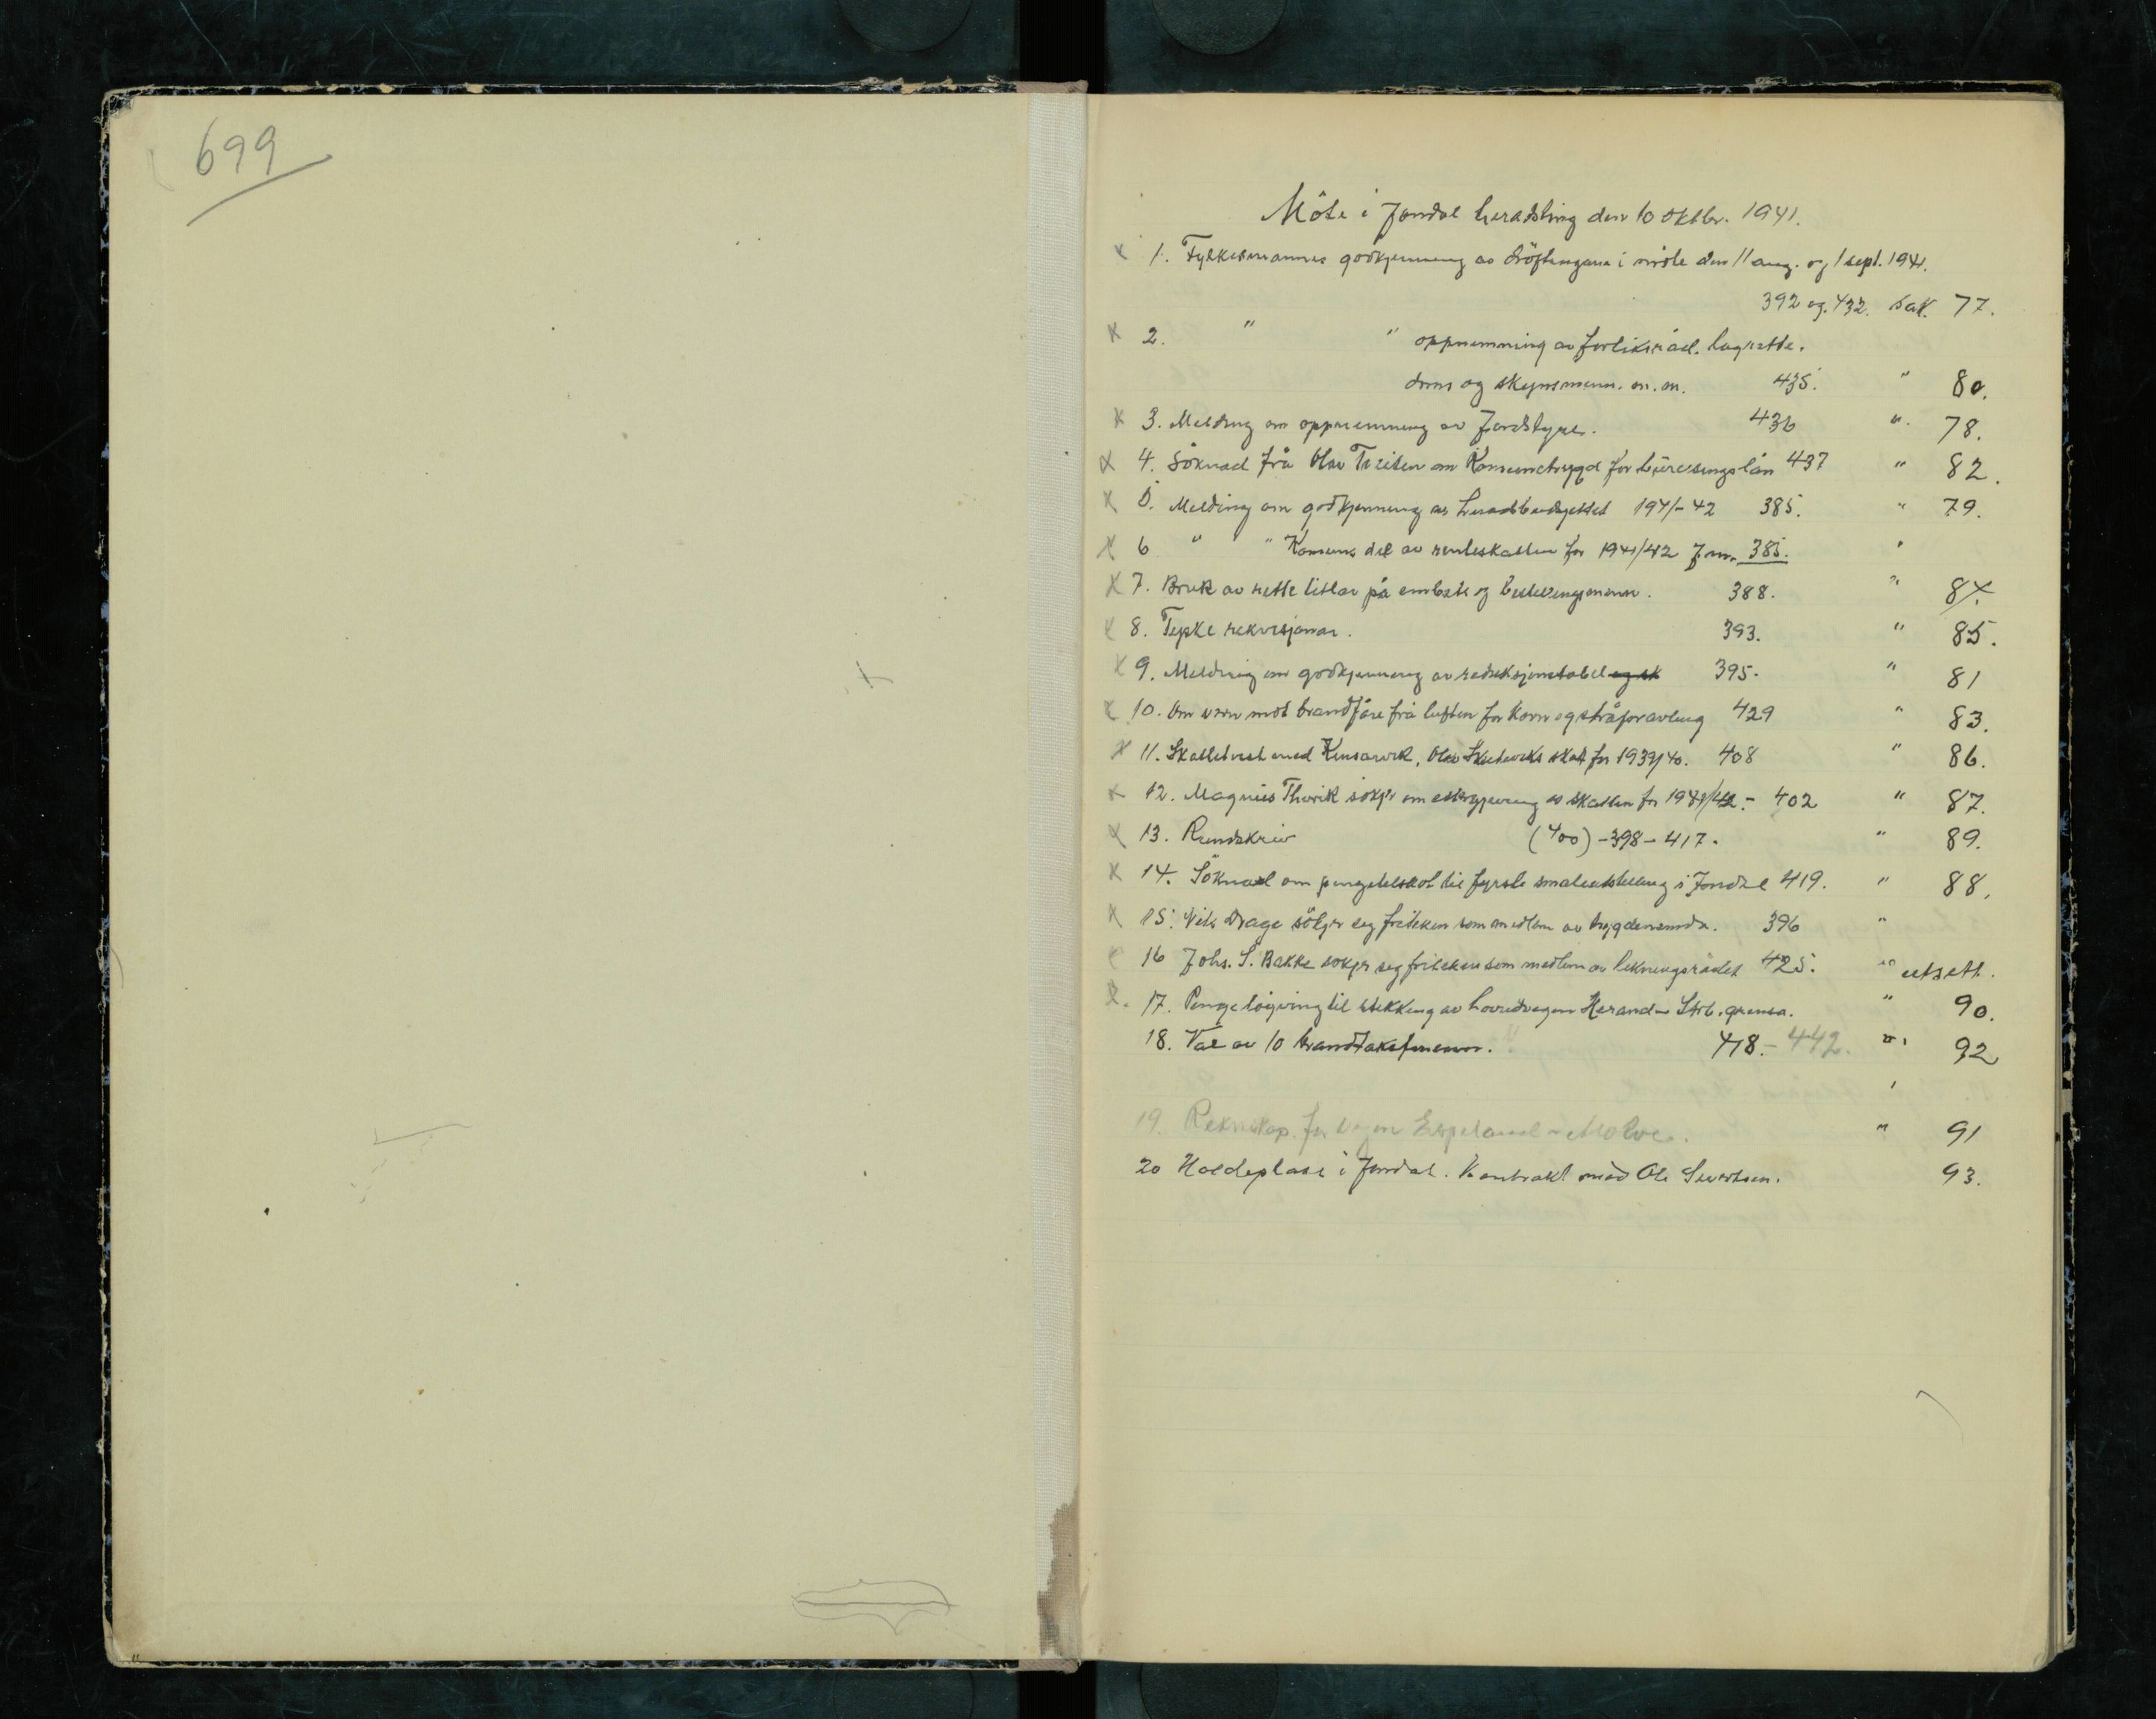 699
Möte i Jondal heradsting den 10 oktbr. 1941.
x 1. Fylkesmannes godkjenning av dröftingane i möte den 11 aug. og 1 sept. 1941.
392 og. 432. sak. 77.
x 2. " " oppnemning av forliksråd. lagrette.
doms og skjynsmenn. m. m. 435. " 80.
x 3. Melding om oppnemning av Jordstyre. 436 " 78.
x 4. Söknad frå Olav Treiten om Komunetrygd for lån 437 " 82.
x 5. Melding om godkjenning av heradsbudsjettet 1941-42 385. " 79.
x 6 " " Komuns del av renteskatten for 1941/42 J.nr. 385. "
x 7. Bruk av rette titlar på embets og bestillingsmenn. 388. " 84.
x 8. Tyske rekvisjonar. 393. " 85.
x 9. Melding om godkjenning av reduksjonstabel og sk 395. " 81
x 10. Om vern mot brandfåre frå luften for korn og stråforavling 429 " 83.
x 11. Skattetvist med Kinsarvik, Olav skatt for 1939/40. 408 " 86.
x 12. Magnus Thorik sökjer om ettergjeving av skatten for 1941/42. - 402 " 87.
x 13. Rundskriv (400) - 398 - 417. " 89.
x 14. Söknad om pengetilskot til fyrste smaleutstelling i Jondal 419. " 88.
x 15. Nils Drage sökjer seg friteken som medlem av trygdenemda. 396 "
16 Johs. S. Bakke sökjer seg friteken som medlem av likningsrådet 425. " utsett.
x. 17. Pengelöyving til stikking av hovudvegen Herand - Strb. grensa. " 90.
18. Val av 10 brandtakstmenn. 418. - 442. " 92
19. Rekneskap. for vegen Espeland - Molven. " 91
20 Holdeplass i Jondal. Kontrakt med Ole Sivertsen. 93.